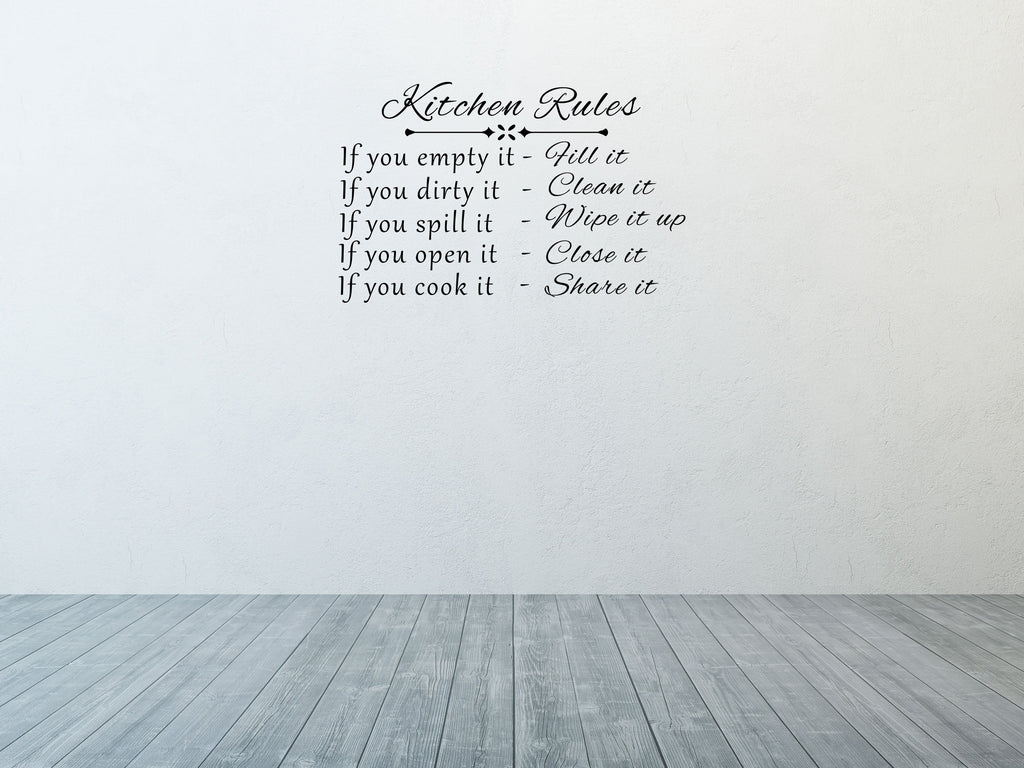 Kitchen Rules
If you empty it - Fill it
If you dirty it - Clean it
If you spill it - Wipe it up
If you open it - Close it
If you cook it - Share it